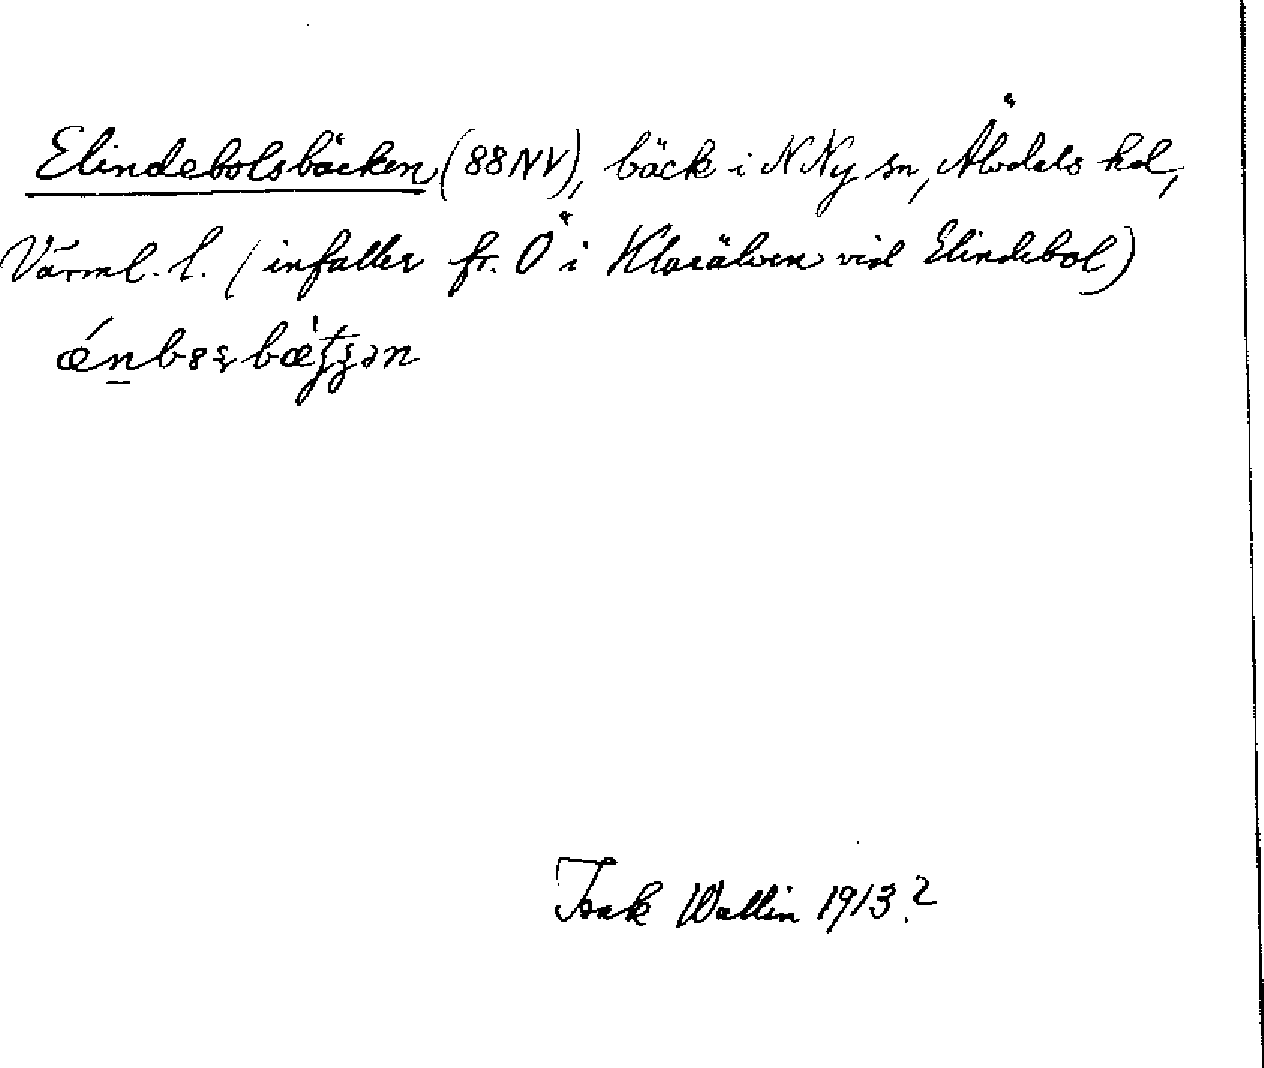 Elindebolsbäcken (88NV), bäck i N Ny sn, Älvdals hd,
Värml. l. (infaller fr. Ö i Klarälven vid Elindebol)
Isak Wallin 1913.2